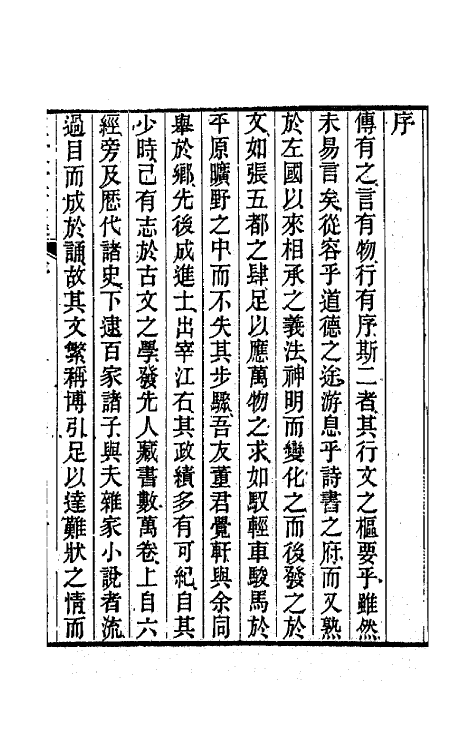 序
傳有之言有物行有序斯二者其行文之樞要乎雖然
未易言矣從容乎道德之途游息乎詩書之府而又熟
於左國以來相承之義法神明而變化之而後發之於
文如張五都之肆足以應萬物之求如馭輕車駿馬於
平原曠野之中而不失其步驟吾友董君覺軒與余同
舉於鄉先後成進士出宰江右其政績多有可紀自其
少時已有志於古文之學發先人藏書數萬卷上自六
經旁及歷代諸史下逮百家諸子與夫雜家小說者流
過目而成於誦故其文繁稱博引足以達難狀之情而